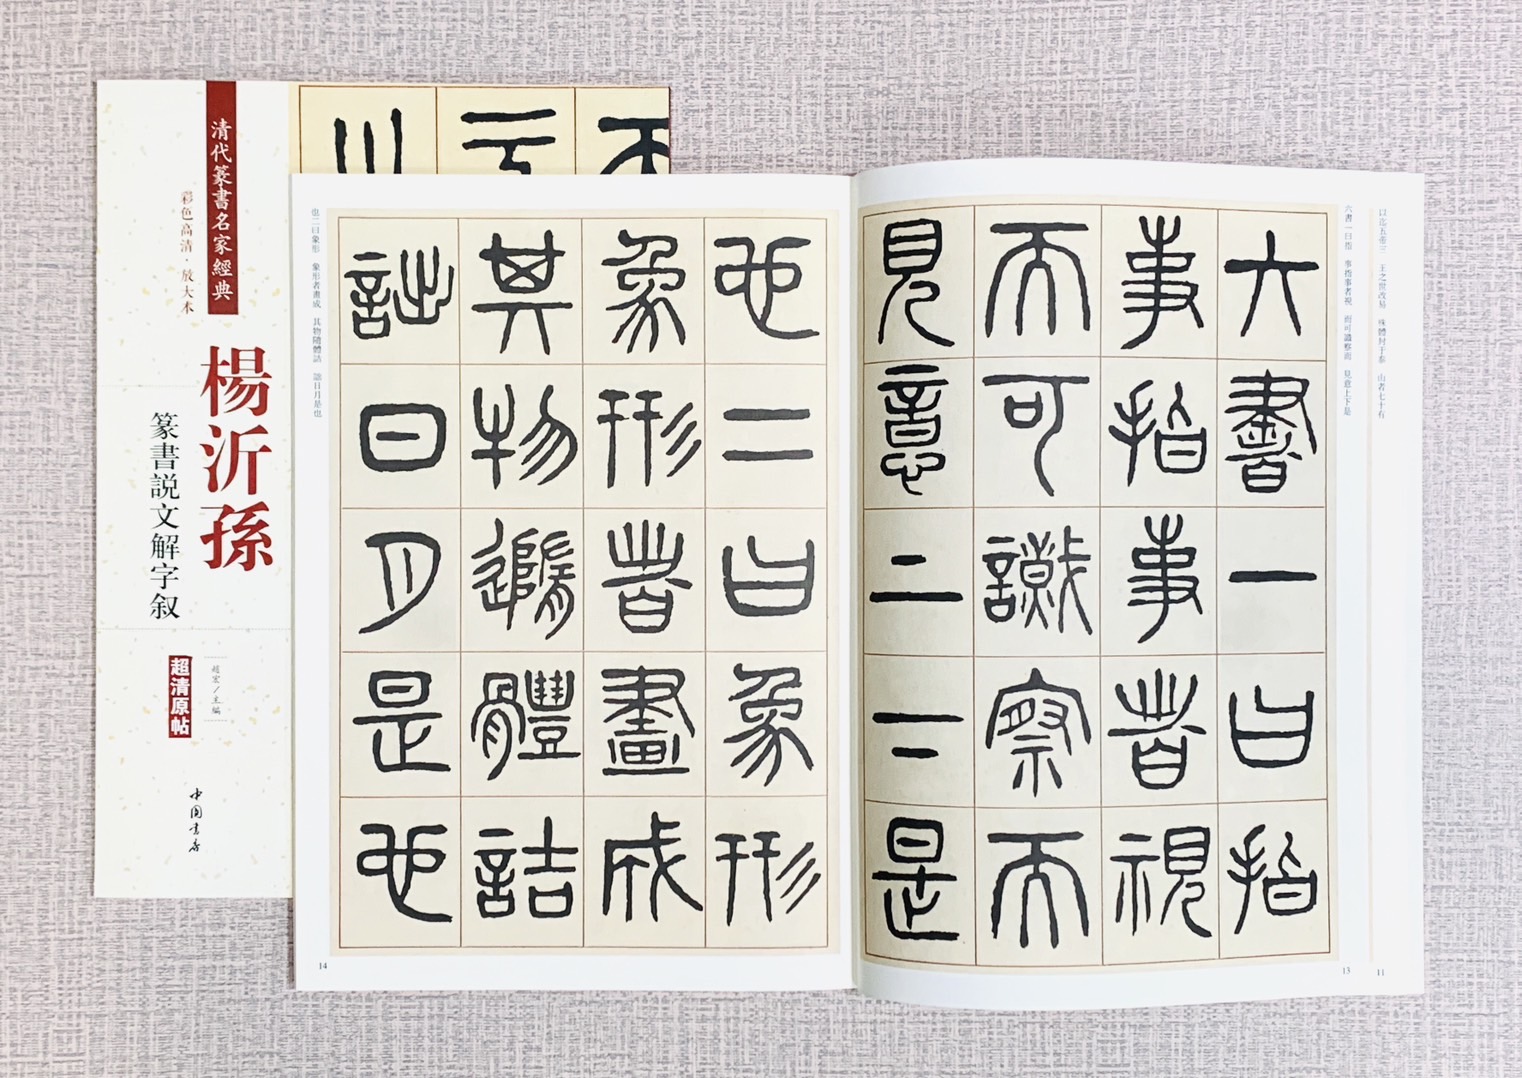 清代篆書名家經典
彩色高清·放大本
楊沂孫
篆書説文解字叙
趙宏/主編
超清原帖
中国书店
六書一曰指
事指事者視
而可識察而
見意二二是
也二曰象形
象形者畫成
其物隨體詰
詘日月是也
六書一曰指 事指事者視 而可識察而 見意上下是
也二曰象形 象形者畫成 其物隨體詰 詘日月是也
以迄五帝三 王之世改易 殊體封于泰 山者七十有
14
13
11